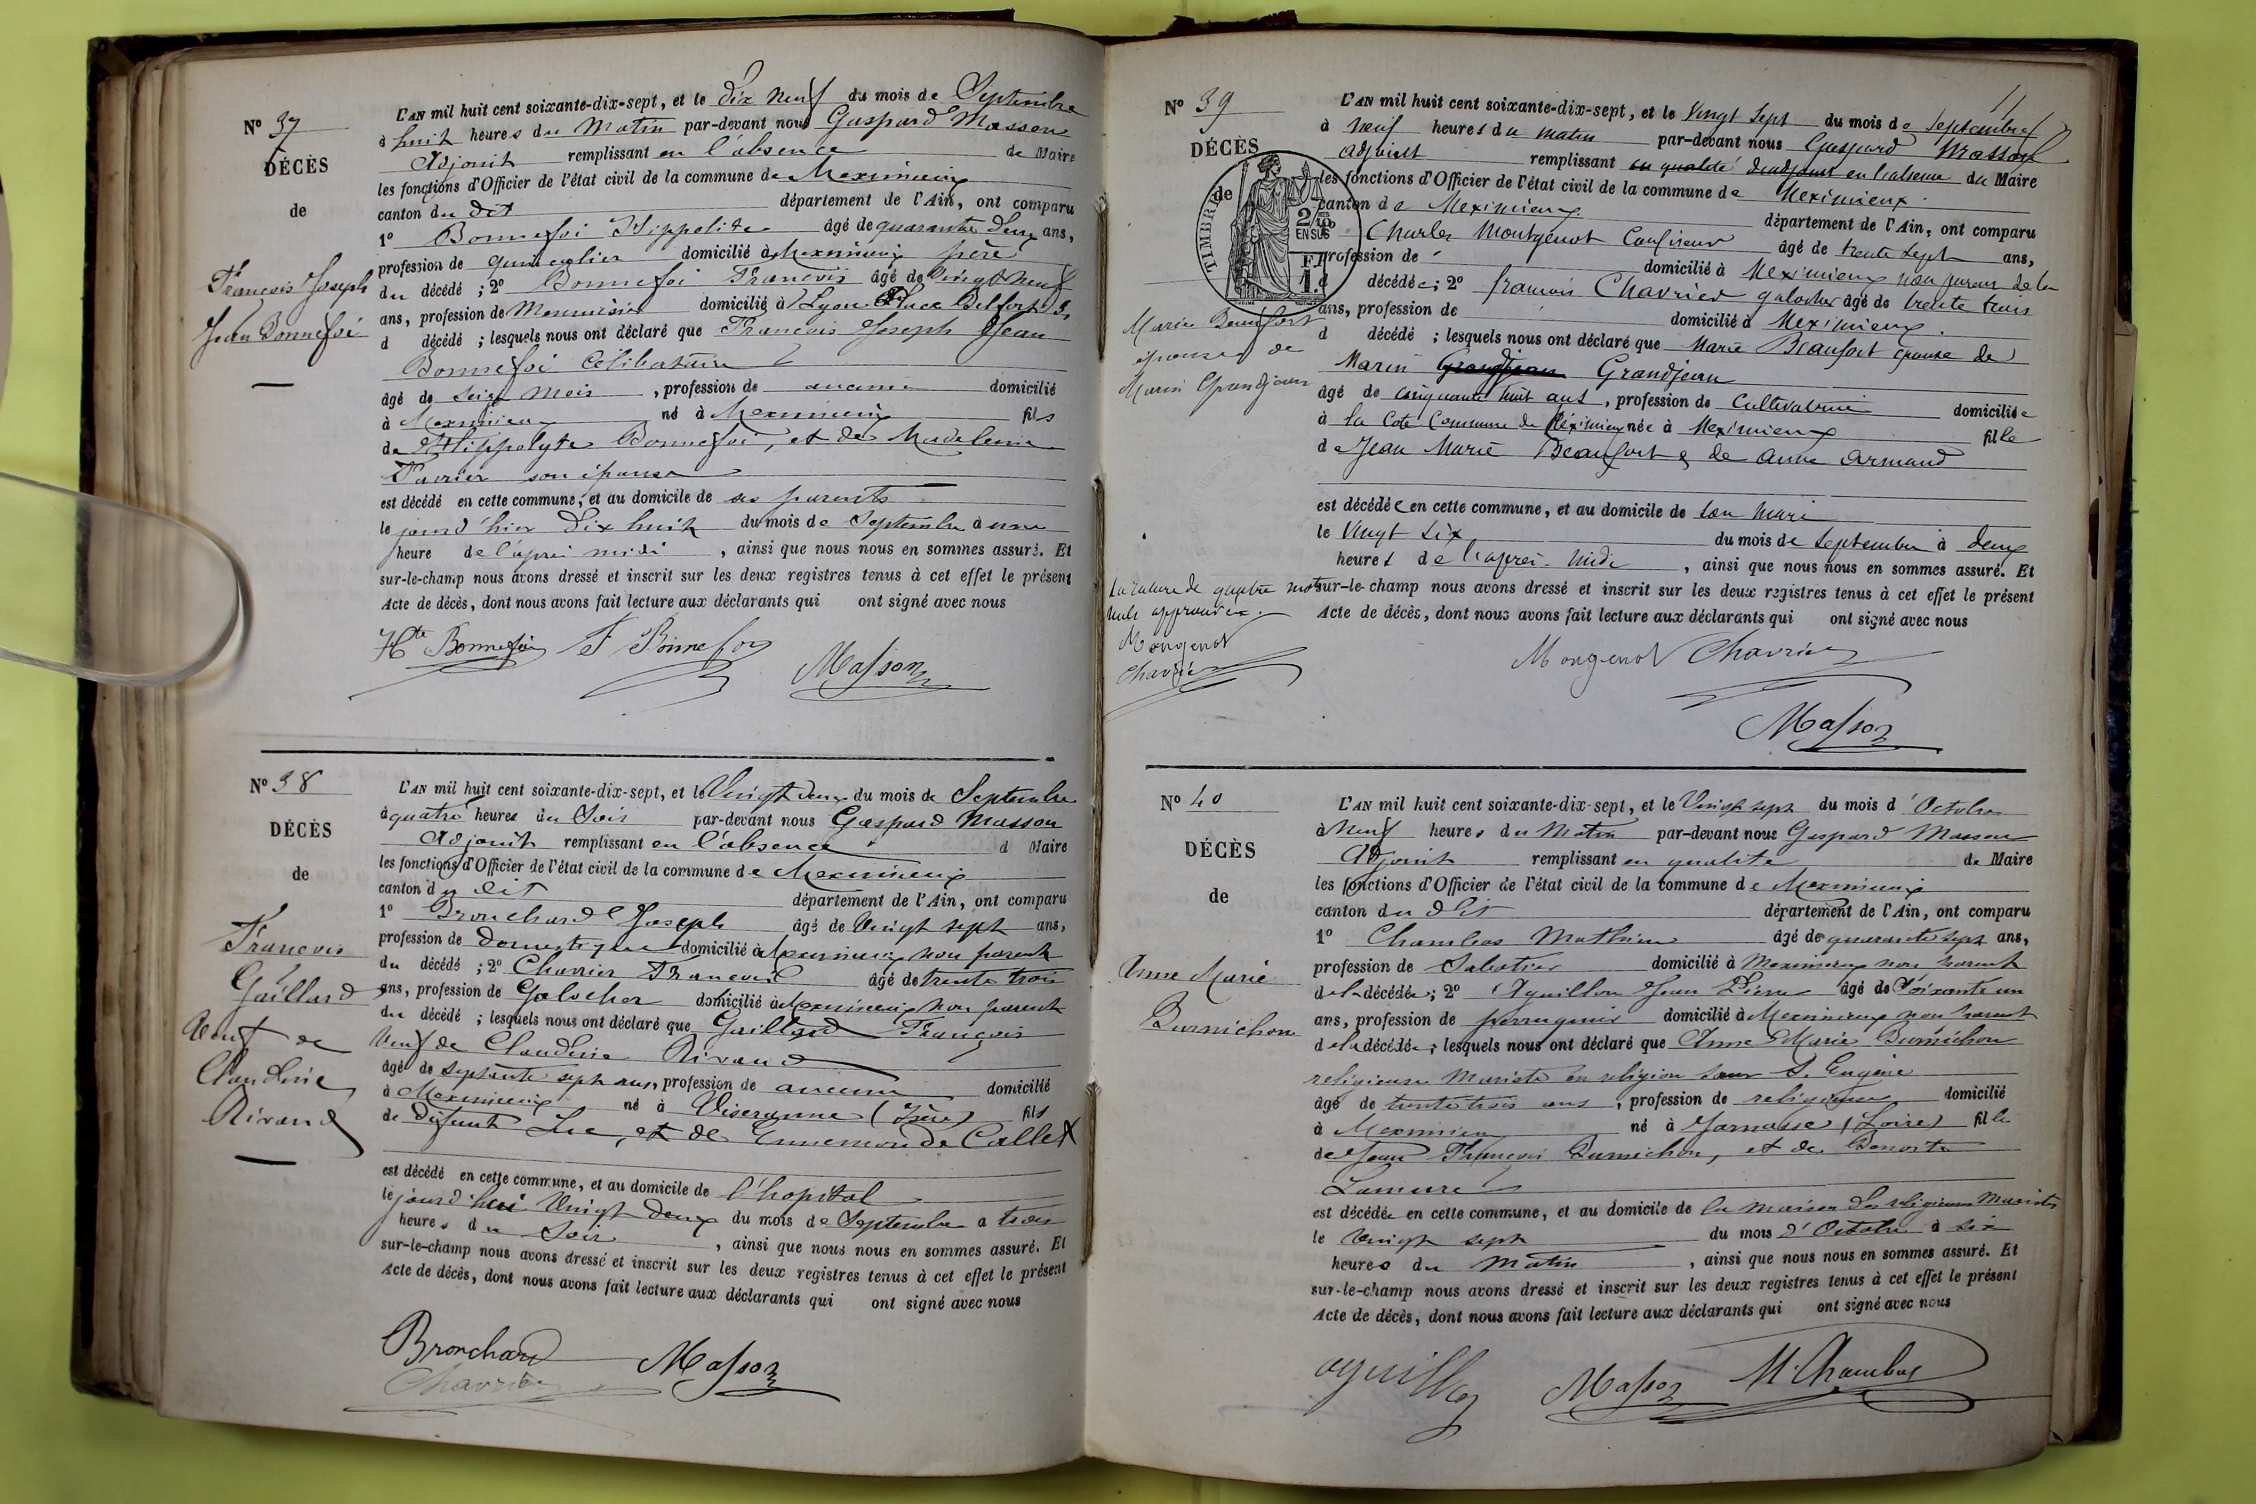 N° 37
DÉCÈS
de
François Joseph
Jean Bonnefoi
L'AN mil huit cent soixante-dix-sept, et le dix neuf du mois de Septembre
à huit heures du Matin par-devant nous Gaspard Masson
Adjoint remplissant en l'absence de Maire
les fonctions d'Officier de l'état civil de la commune de Meximieux
canton du dit département de l'Ain, ont comparu
1° Bonnefoi Hippolite âgé de quarante deux ans,
profession de quincalier domicilié à Meximieux père
du décédé ; 2° Bonnefoi François âgé de Vingt Neuf
ans, profession de Menuisier domicilié à Lyon Place Belfort 3,
d décédé ; lesquels nous ont déclaré que François Joseph Jean
Bonnefoi Célibataire
âgé de Seize mois , profession de aucune domicilié
à Meximieux né à Meximieux fils
de Hippolyte Bonnefoi, et de Madeleine
Favrier son épouse
est décédé en cette commune, et au domicile de ses parents
le jourd'hier dix huit du mois de Septembre à une
heure de l'après midi , ainsi que nous nous en sommes assuré. Et
sur-le-champ nous avons dressé et inscrit sur les deux registres tenus à cet effet le présent
Acte de décès, dont nous avons fait lecture aux déclarants qui ont signé avec nous
Hte Bonnefoi F Bonnefoy
Masson
N° 38
DÉCÈS
de
François
Gaillard
Veuf de
Claudine
Rivaud
L'AN mil huit cent soixante-dix-sept, et le Vingt deux du mois de Septembre
à quatre heures du Soir par-devant nous Gaspard Masson
Adjoint remplissant en l'absence d Maire
les fonctions d'Officier de l'état civil de la commune de Meximieux
canton du dit département de l'Ain, ont comparu
1° Bronchard Joseph âgé de Vingt sept ans,
profession de Domestique domicilié à Meximieux non parent
du décédé ; 2° Chavrier François âgé de trente trois
ans, profession de Galocher domicilié à Meximieux non parent
du décédé ; lesquels nous ont déclaré que Gaillard François
Veuf de Claudine Rivaud
âgé de septante sept ans, profession de aucune domicilié
à Meximieux né à Viseranne (Isère) fils
de défunt Luc, et de Ennemonde Callet
est décédé en cette commune, et au domicile de l'hopital
le jourd'hui Vingt deux du mois de Septembre à trois
heures du Soir , ainsi que nous nous en sommes assuré. Et
sur-le-champ nous avons dressé et inscrit sur les deux registres tenus à cet effet le présent
Acte de décès, dont nous avons fait lecture aux déclarants qui ont signé avec nous
Bronchard Masson
Chavrier
11
N° 39
DÉCÈS
de
TIMBRE
2/10mes
EN SUS
1 F.
Marie Beaufort
épouse de
Marin Grandjean
L'AN mil huit cent soixante-dix-sept, et le Vingt Sept du mois de Septembre
à Neuf heures du matin par-devant nous Gaspard Masson
adjoint remplissant en qualité d'adjoint en l'absence du Maire
les fonctions d'Officier de l'état civil de la commune de Meximieux
canton de Meximieux département de l'Ain, ont comparu
Charles Montgenot Confiseur âgé de trente sept ans,
profession de domicilié à Meximieux non parent de la
décédée ; 2° François Chavrier galocher âgé de trente trois
ans, profession de domicilié à Meximieux
d décédé ; lesquels nous ont déclaré que Marie Beaufort épouse de
Marin Grandjean Grandjean
âgé de cinquante huit ans , profession de Cultivatrice domiciliée
à la Cote Commune de Méximieux née à Meximieux fille
de Jean Marie Beaufort & de Anne Armand
est décédée en cette commune, et au domicile de son mari
le Vingt Six du mois de Septembre à deux
heures de l'après-midi , ainsi que nous nous en sommes assuré. Et
sur-le-champ nous avons dressé et inscrit sur les deux registres tenus à cet effet le présent
Acte de décès, dont nous avons fait lecture aux déclarants qui ont signé avec nous
La rature de quatre mots
nuls approuvée.
Mongenot
Chavrier
Mongenot Chavrier
Masson
N° 40
DÉCÈS
de
Anne Marie
Burnichon
L'AN mil huit cent soixante-dix-sept, et le Vingt sept du mois d'Octobre
à Neuf heures du Matin par-devant nous Gaspard Masson
Adjoint remplissant en qualité de Maire
les fonctions d'Officier de l'état civil de la commune de Meximieux
canton du dit département de l'Ain, ont comparu
1° Chambas Mathieu âgé de quarante sept ans,
profession de Sabotier domicilié à Meximieux non parent
de la décédée ; 2° Aguillon Jean Pierre âgé de Soixante un
ans, profession de perruquier domicilié à Meximieux non parent
de la décédée ; lesquels nous ont déclaré que Anne Marie Burnichon
religieuse Mariste en religion Sœur St Eugénie
âgé de trente trois ans , profession de religieuse domicilié
à Meximieux né à Jarnosse (Loire) fille
de Jean François Burnichon, et de Benoite
Lamure
est décédée en cette commune, et au domicile de la maison des religieuses Maristes
le Vingt sept du mois d'Octobre à six
heures du Matin , ainsi que nous nous en sommes assuré. Et
sur-le-champ nous avons dressé et inscrit sur les deux registres tenus à cet effet le présent
Acte de décès, dont nous avons fait lecture aux déclarants qui ont signé avec nous
aguillon Masson M Chambas